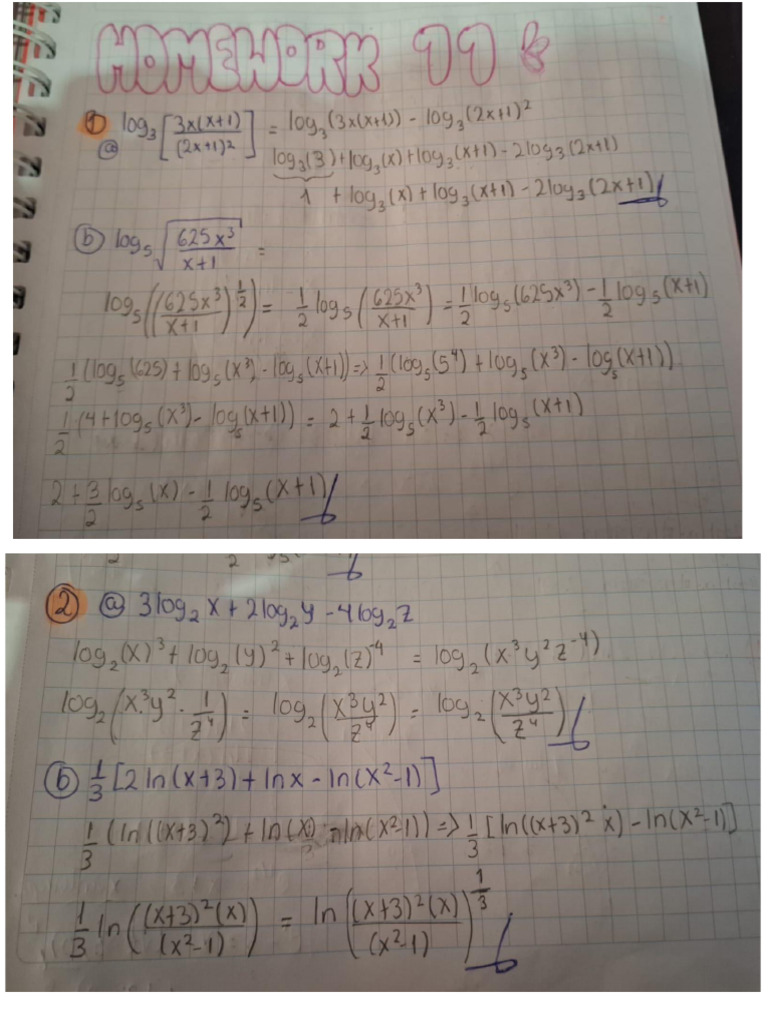 HOMEWORK 11
① log₃[3x(x+1)/(2x+1)²] = log₃(3x(x+1)) - log₃(2x+1)²
ⓐ log₃(3)+log₃(x)+log₃(x+1)-2log₃(2x+1)
1 + log₃(x)+log₃(x+1)-2log₃(2x+1)
ⓑ log₅√(625x³/(x+1)) =
log₅((625x³/(x+1))^(1/2)) = 1/2 log₅(625x³/(x+1)) = 1/2 log₅(625x³) - 1/2 log₅(x+1)
1/2 (log₅(625)+log₅(x³)-log₅(x+1)) => 1/2 (log₅(5⁴)+log₅(x³)-log₅(x+1))
1/2 (4+log₅(x³)-log₅(x+1)) = 2+1/2 log₅(x³)-1/2 log₅(x+1)
2+3/2 log₅(x)-1/2 log₅(x+1)
② ⓐ 3log₂x+2log₂y-4log₂z
log₂(x)³+log₂(y)²+log₂(z)⁻⁴ = log₂(x³y²z⁻⁴)
log₂(x³y²·1/z⁴) = log₂(x³y²/z⁴) = log₂(x³y²/z⁴)
ⓑ 1/3 [2ln(x+3)+lnx-ln(x²-1)]
1/3 (ln((x+3)²)+ln(x)-ln(x²-1)) => 1/3 [ln((x+3)²·x)-ln(x²-1)]
1/3 ln((x+3)²(x)/(x²-1)) = ln((x+3)²(x)/(x²-1))^(1/3)